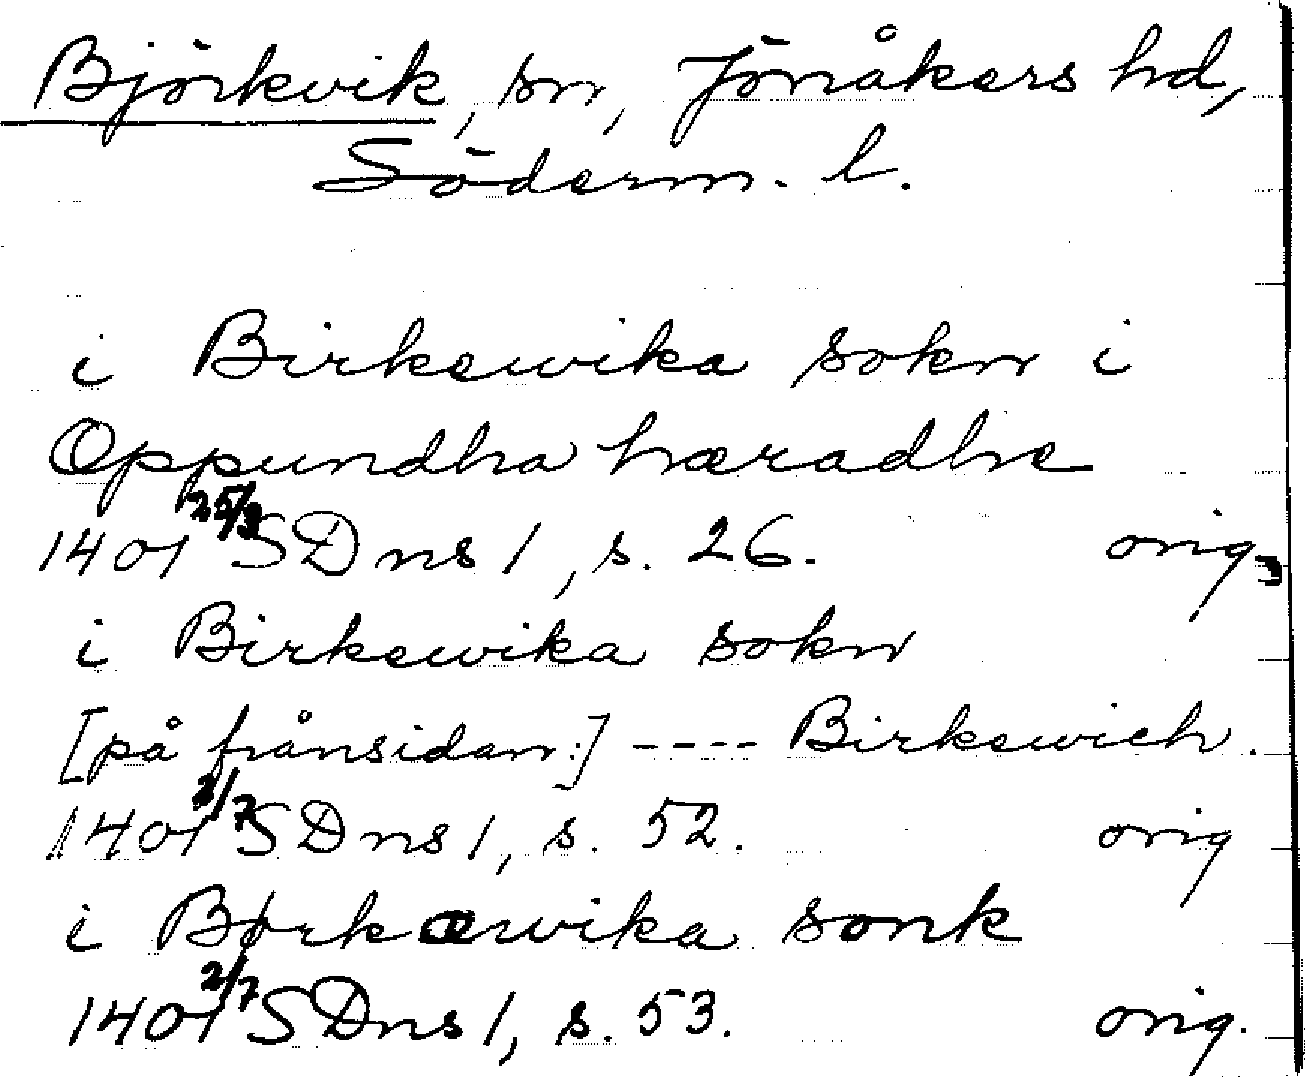 Björkvik, sn, Jönåkers hd,
Söderm. l.
i Birkewika sokn i
Oppundha hæradhe
1401 25/3 SDns 1, s. 26. orig.
i Birkewika sokn
[på frånsidan:] ---- Birkewich.
1401 2/7 SDns 1, s. 52. orig
i Børkæwika sonk
1401 2/7 SDns 1, s. 53. orig.